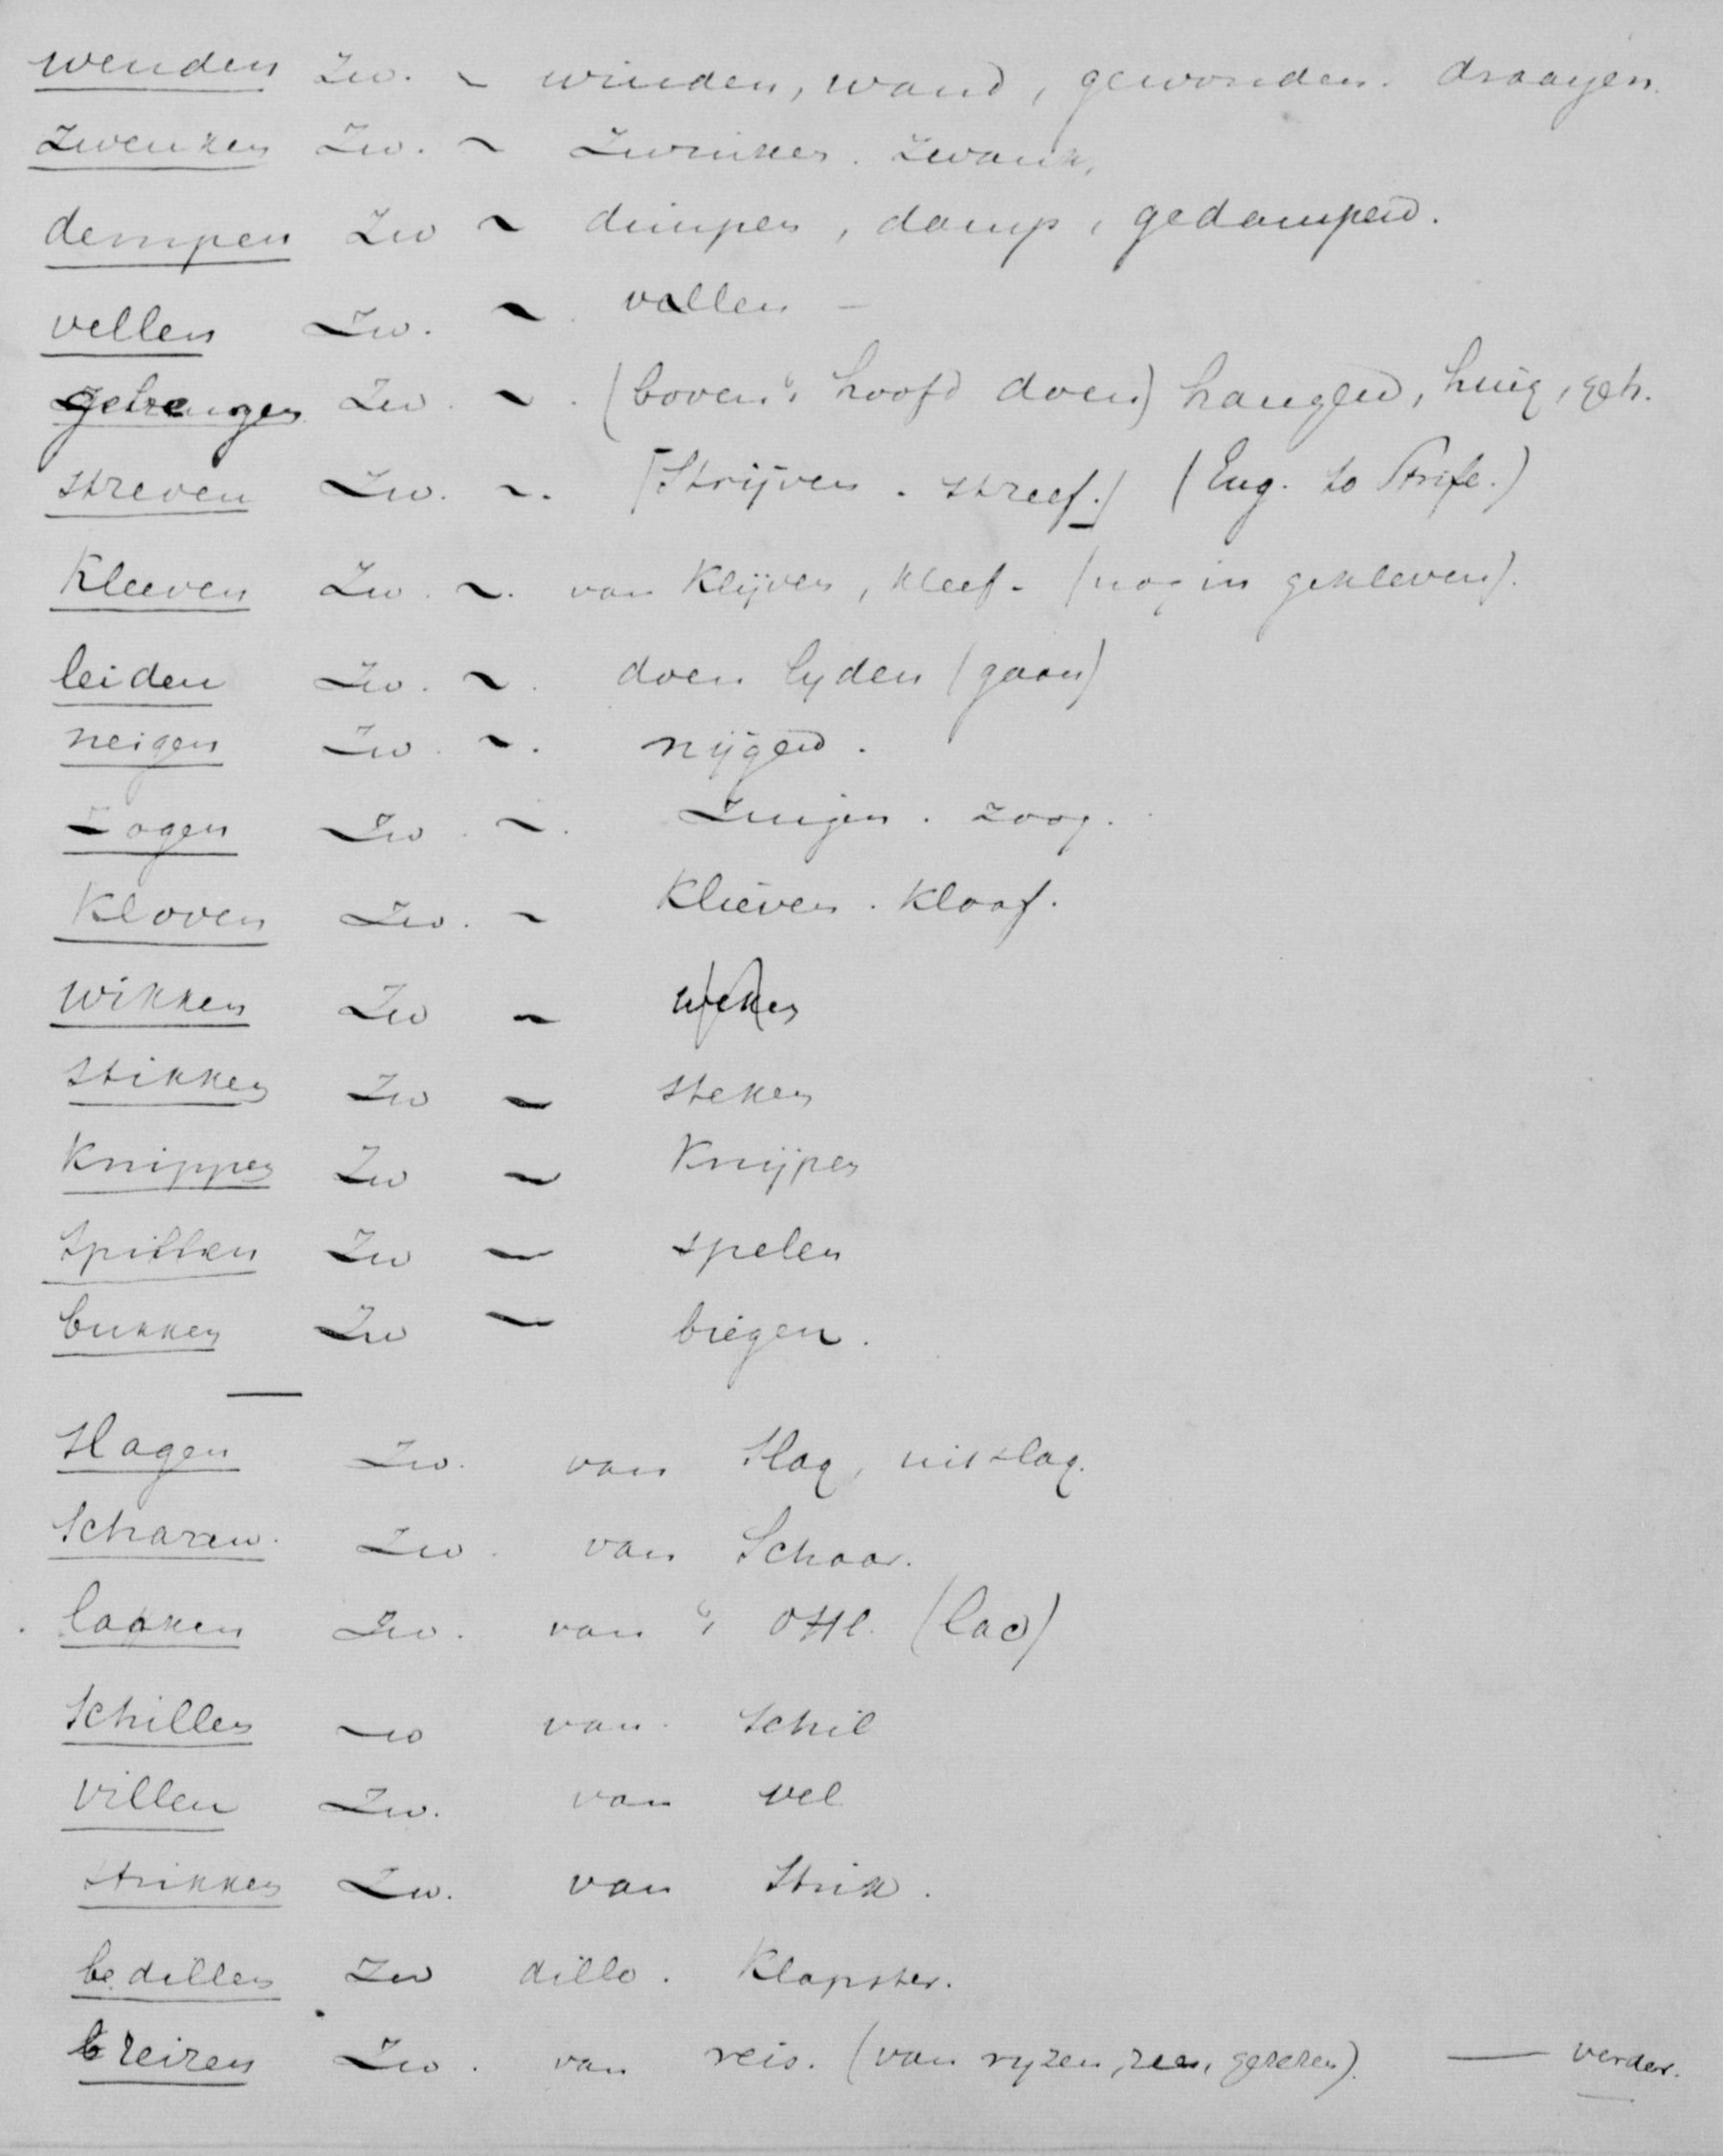 wenden Zw. ~ winden, wand, gewonden. draayen.
Zwenken Zw. ~ Zwinken. Zwank,
dempen Zw ~ dimpen, damp, gedompen.
vellen Zw. ~ vallen —
Zw. ~. (boven 't hoofd doen) hangen, hing, geh.
streven Zw. ~. [Strijven. streef.] (Eng. to Strife.)
Kleeven Zw. ~. van Klijven, kleef. (nog in gekleven).
leiden Zw. ~. doen lyden (gaan)
neigen Zw. ~. nijgen.
Zogen Zw. ~. Zuigen. zoog.
Kloven Zw. ~ Klieven. Kloof.
wikken Zw ~
stikken Zw ~ steken
Knippen Zw ~ Knijpen
Spillen Zw ~ spelen
bukken Zw ~ biegen.
—
Slagen Zw. van Slag, uitslag.
Scharen. Zw. van Schaar.
laaken Zw. van 't OHl. (lac)
Schillen Zw van. Schil
villen Zw. van vel
strikken Zw. van Strik.
bedillen Zw dille. Klapster.
reizen Zw. van reis. (van ryzen, rees, gerezen). — verder.